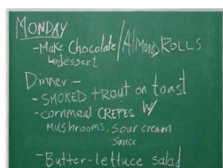 MONDAY
- Make Chocolate / Almond ROLLS
dessert
Dinner -
- SMOKED trout on toast
- cornmeal CREPES W/
Mushrooms, sour cream
sauce
- Butter-lettuce salad